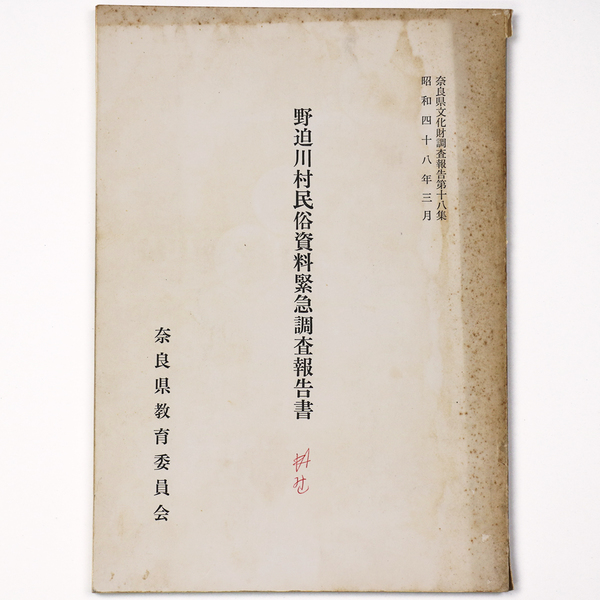 奈良県文化財調査報告第十八集
昭和四十八年三月
野迫川村民俗資料緊急調査報告書
奈良県教育委員会